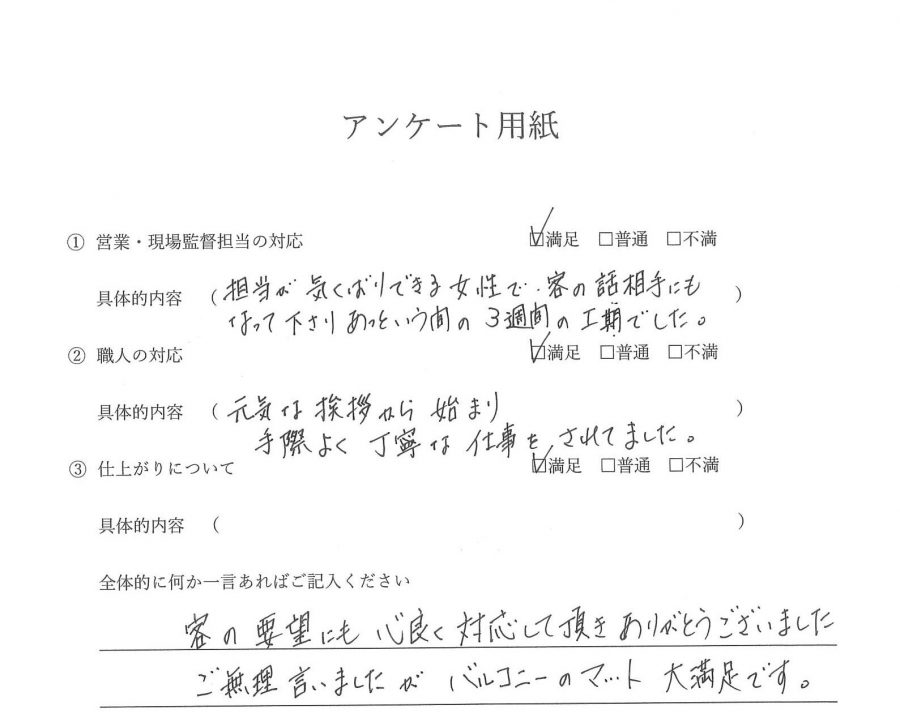 アンケート用紙
① 営業・現場監督担当の対応 ☑満足 □普通 □不満
具体的内容 (担当が気くばりできる女性で、客の話相手にも )
なって下さりあっという間の3週間の工期でした。
② 職人の対応 ☑満足 □普通 □不満
具体的内容 (元気な挨拶から始まり )
手際よく丁寧な仕事を、されてました。
③ 仕上がりについて ☑満足 □普通 □不満
具体的内容 ( )
全体的に何か一言あればご記入ください
客の要望にも心良く対応して頂きありがとうございました
ご無理言いましたが バルコニーのマット 大満足です。